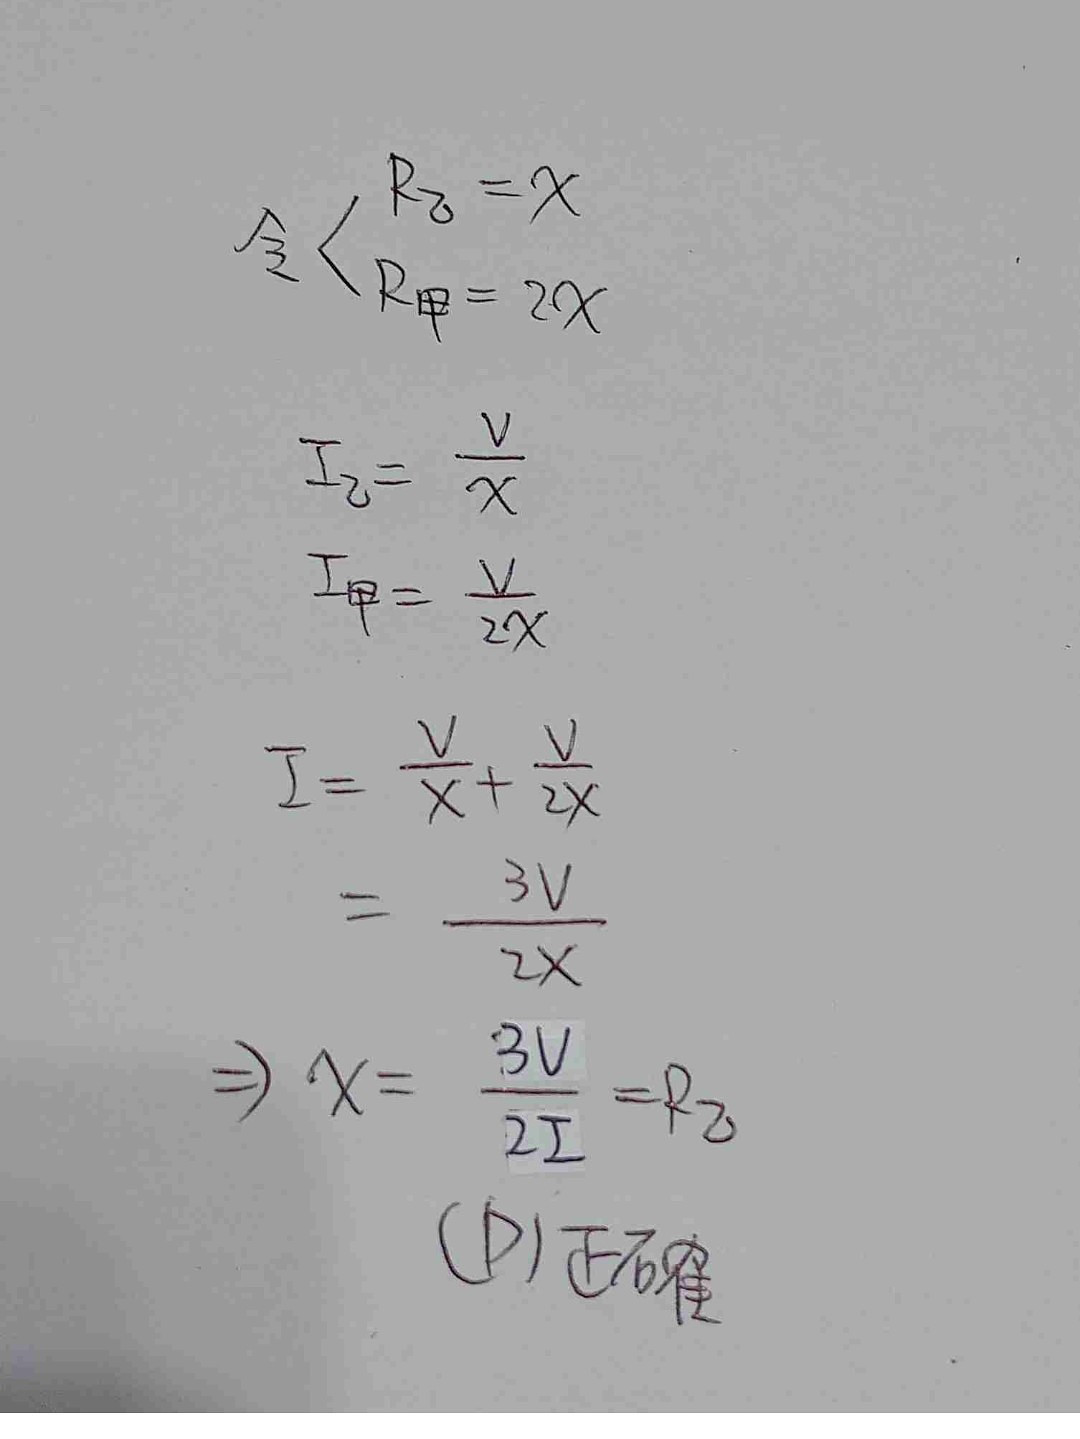 令 < R乙 = x
R甲 = 2x
I乙 = V/x
I甲 = V/2x
I = V/x + V/2x
= 3V/2x
⇒ x = 3V/2I = R乙
(D) 正確